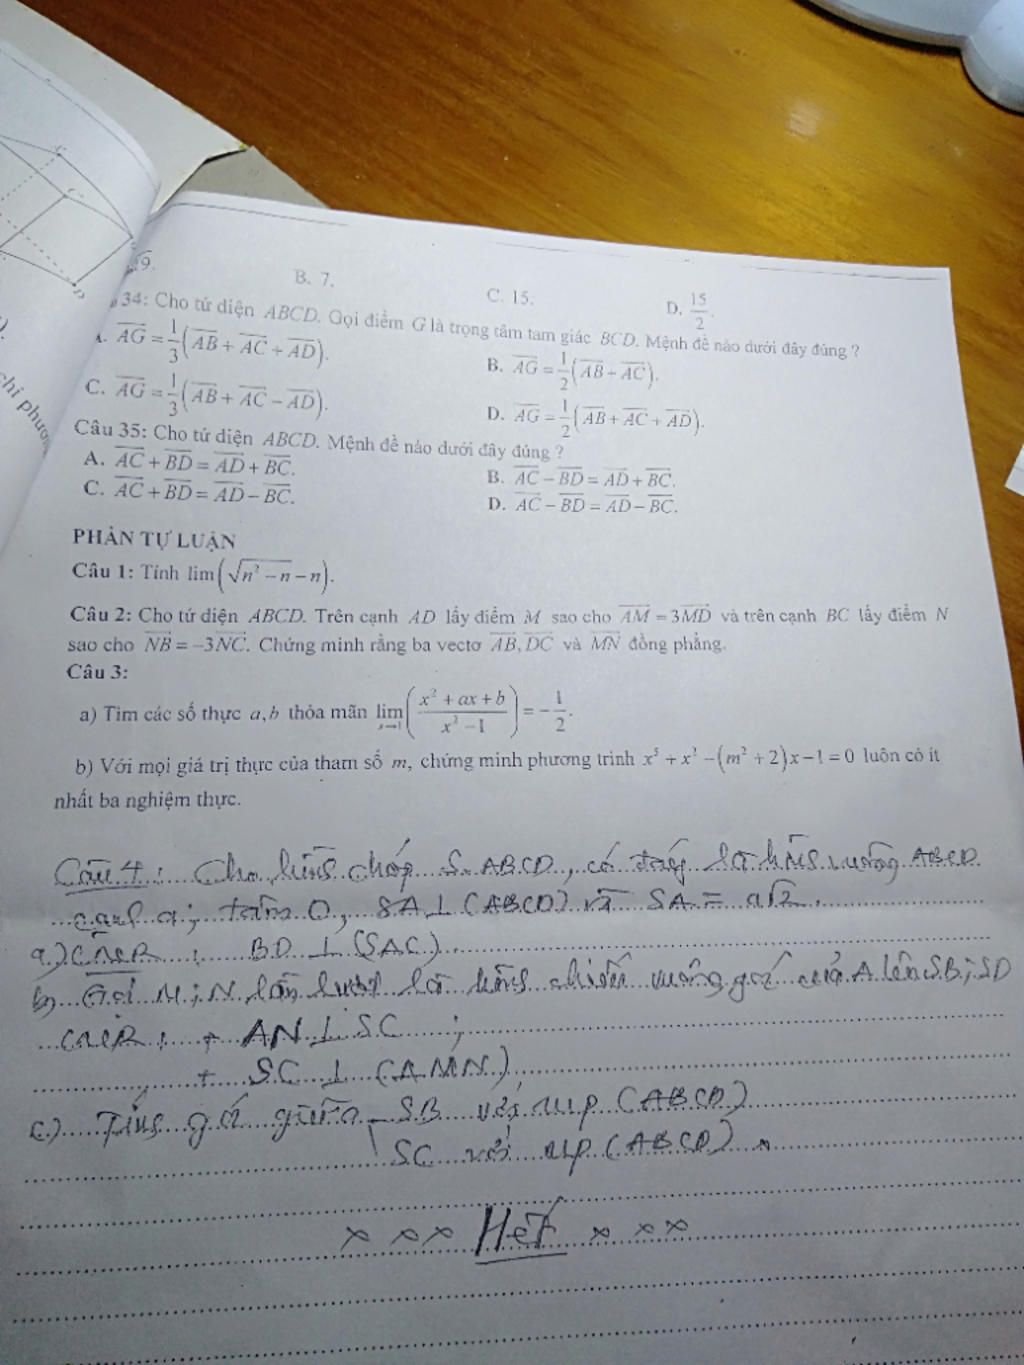 9.
B. 7.
C. 15.
D. 15/2.
34: Cho tứ diện ABCD. Gọi điểm G là trọng tâm tam giác BCD. Mệnh đề nào dưới đây đúng ?
A. \overrightarrow{AG} = 1/3(\overrightarrow{AB} + \overrightarrow{AC} + \overrightarrow{AD}).
B. \overrightarrow{AG} = 1/2(\overrightarrow{AB} + \overrightarrow{AC}).
C. \overrightarrow{AG} = 1/3(\overrightarrow{AB} + \overrightarrow{AC} − \overrightarrow{AD}).
D. \overrightarrow{AG} = 1/2(\overrightarrow{AB} + \overrightarrow{AC} + \overrightarrow{AD}).
Câu 35: Cho tứ diện ABCD. Mệnh đề nào dưới đây đúng ?
A. \overrightarrow{AC} + \overrightarrow{BD} = \overrightarrow{AD} + \overrightarrow{BC}.
B. \overrightarrow{AC} − \overrightarrow{BD} = \overrightarrow{AD} + \overrightarrow{BC}.
C. \overrightarrow{AC} + \overrightarrow{BD} = \overrightarrow{AD} − \overrightarrow{BC}.
D. \overrightarrow{AC} − \overrightarrow{BD} = \overrightarrow{AD} − \overrightarrow{BC}.
PHẦN TỰ LUẬN
Câu 1: Tính lim(√(n² − n) − n).
Câu 2: Cho tứ diện ABCD. Trên cạnh AD lấy điểm M sao cho \overrightarrow{AM} = 3\overrightarrow{MD} và trên cạnh BC lấy điểm N
sao cho \overrightarrow{NB} = −3\overrightarrow{NC}. Chứng minh rằng ba vectơ \overrightarrow{AB}, \overrightarrow{DC} và \overrightarrow{MN} đồng phẳng.
Câu 3:
a) Tìm các số thực a, b thỏa mãn lim x→1 ((x² + ax + b)/(x² − 1)) = −1/2.
b) Với mọi giá trị thực của tham số m, chứng minh phương trình x⁵ + x² − (m² + 2)x − 1 = 0 luôn có ít
nhất ba nghiệm thực.
Câu 4: Cho hình chóp S.ABCD, có đáy là hình vuông ABCD
cạnh a; tâm O, SA ⊥ (ABCD) và SA = a√2.
a.) CMR : BD ⊥ (SAC)
b) Gọi M; N lần lượt là hình chiếu vuông góc của A lên SB; SD
CMR : + AN ⊥ SC ;
+ SC ⊥ (AMN)
c.) Tính góc giữa SB với mp (ABCD)
SC với mp (ABCD)
x x x Hết x x x
chi phương